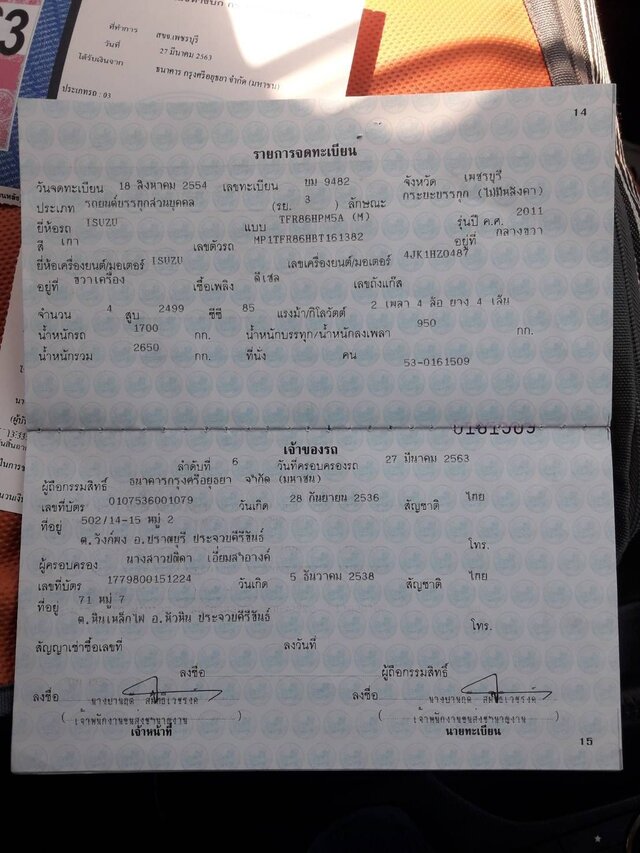 63
ที่ทำการ สขจ.เพชรบุรี
วันที่ 27 มีนาคม 2563
ได้รับเงินจาก ธนาคาร กรุงศรีอยุธยา จำกัด (มหาชน)
ประเภทรถ : 03
14
รายการจดทะเบียน
วันจดทะเบียน 18 สิงหาคม 2554 เลขทะเบียน บม 9482 จังหวัด เพชรบุรี
ประเภท รถยนต์บรรทุกส่วนบุคคล (รย. 3 ) ลักษณะ กระบะบรรทุก (ไม่มีหลังคา)
ยี่ห้อรถ ISUZU แบบ TFR86HPM5A (M) รุ่นปี ค.ศ. 2011
สี เทา เลขตัวรถ MP1TFR86HBT161382 อยู่ที่ กลางขวา
ยี่ห้อเครื่องยนต์/มอเตอร์ ISUZU เลขเครื่องยนต์/มอเตอร์ 4JK1HZ0487
อยู่ที่ ขวาเครื่อง เชื้อเพลิง ดีเซล เลขถังแก๊ส
จำนวน 4 สูบ 2499 ซีซี 85 แรงม้า/กิโลวัตต์ 2 เพลา 4 ล้อ ยาง 4 เส้น
น้ำหนักรถ 1700 กก. น้ำหนักบรรทุก/น้ำหนักลงเพลา 950 กก.
น้ำหนักรวม 2650 กก. ที่นั่ง คน 53-0161509
0161509
เจ้าของรถ
ลำดับที่ 6 วันที่ครอบครองรถ 27 มีนาคม 2563
ผู้ถือกรรมสิทธิ์ ธนาคารกรุงศรีอยุธยา จำกัด (มหาชน)
เลขที่บัตร 0107536001079 วันเกิด 28 กันยายน 2536 สัญชาติ ไทย
ที่อยู่ 502/14-15 หมู่ 2
ต.วังก์พง อ.ปราณบุรี ประจวบคีรีขันธ์ โทร.
ผู้ครอบครอง นางสาวปณิดา เอี่ยมสำอางค์
เลขที่บัตร 1779800151224 วันเกิด 5 ธันวาคม 2538 สัญชาติ ไทย
ที่อยู่ 71 หมู่ 7
ต.หินเหล็กไฟ อ.หัวหิน ประจวบคีรีขันธ์ โทร.
สัญญาเช่าซื้อเลขที่ ลงวันที่
ลงชื่อ ผู้ถือกรรมสิทธิ์
ลงชื่อ ลงชื่อ
( เจ้าพนักงานขนส่งชำนาญงาน ) ( เจ้าพนักงานขนส่งชำนาญงาน )
เจ้าหน้าที่ นายทะเบียน
15